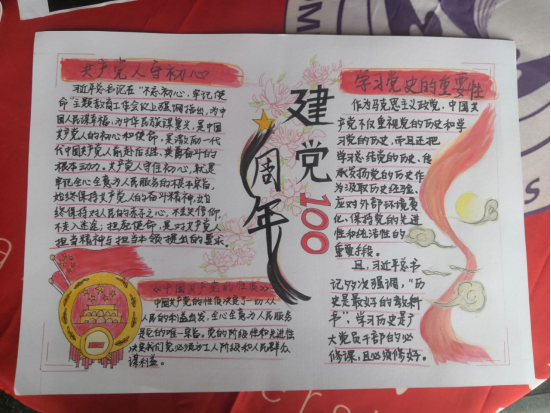 共产党人守初心
习近平总书记在"不忘初心、牢记使
命"主题教育工作会议上强调指出,为中
国人民谋幸福,为中华民族谋复兴,是中国
共产党人的初心和使命,是激励一代
代中国共产党人前赴后继、英勇奋斗的
根本动力。共产党人守初心,就是
牢记全心全意为人民服务的根本宗旨,
始终保持共产党人的奋斗精神,
始终保持对人民的赤子之心,不迷失信仰,
不走入迷途。担起使命,是对共产党人
担当精神与担当本领提出的要求。
建党100
周年
学习党史的重要性
作为马克思主义政党,中国共
产党不仅重视党的历史和学
习党的历史,而且还把
学习总结党的历史、传
承发扬党的历史作
为汲取历史经验、
应对外部环境变
化、保持党的先进
性和纯洁性的
重要手段。
且,习近平总书
记多次强调,"历
史是最好的教科
书",学习历史是广
大党员干部的必
修课,且必须修好。
《中国共产党的性质》
中国共产党的性质决定了一切从
人民的利益出发,全心全意为人民服务
是党的唯一宗旨。党的阶级性和先进性
决定我们党必须为工人阶级和人民群众
谋利益。